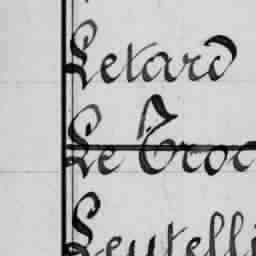 Letard
Le Troc
Leutelli